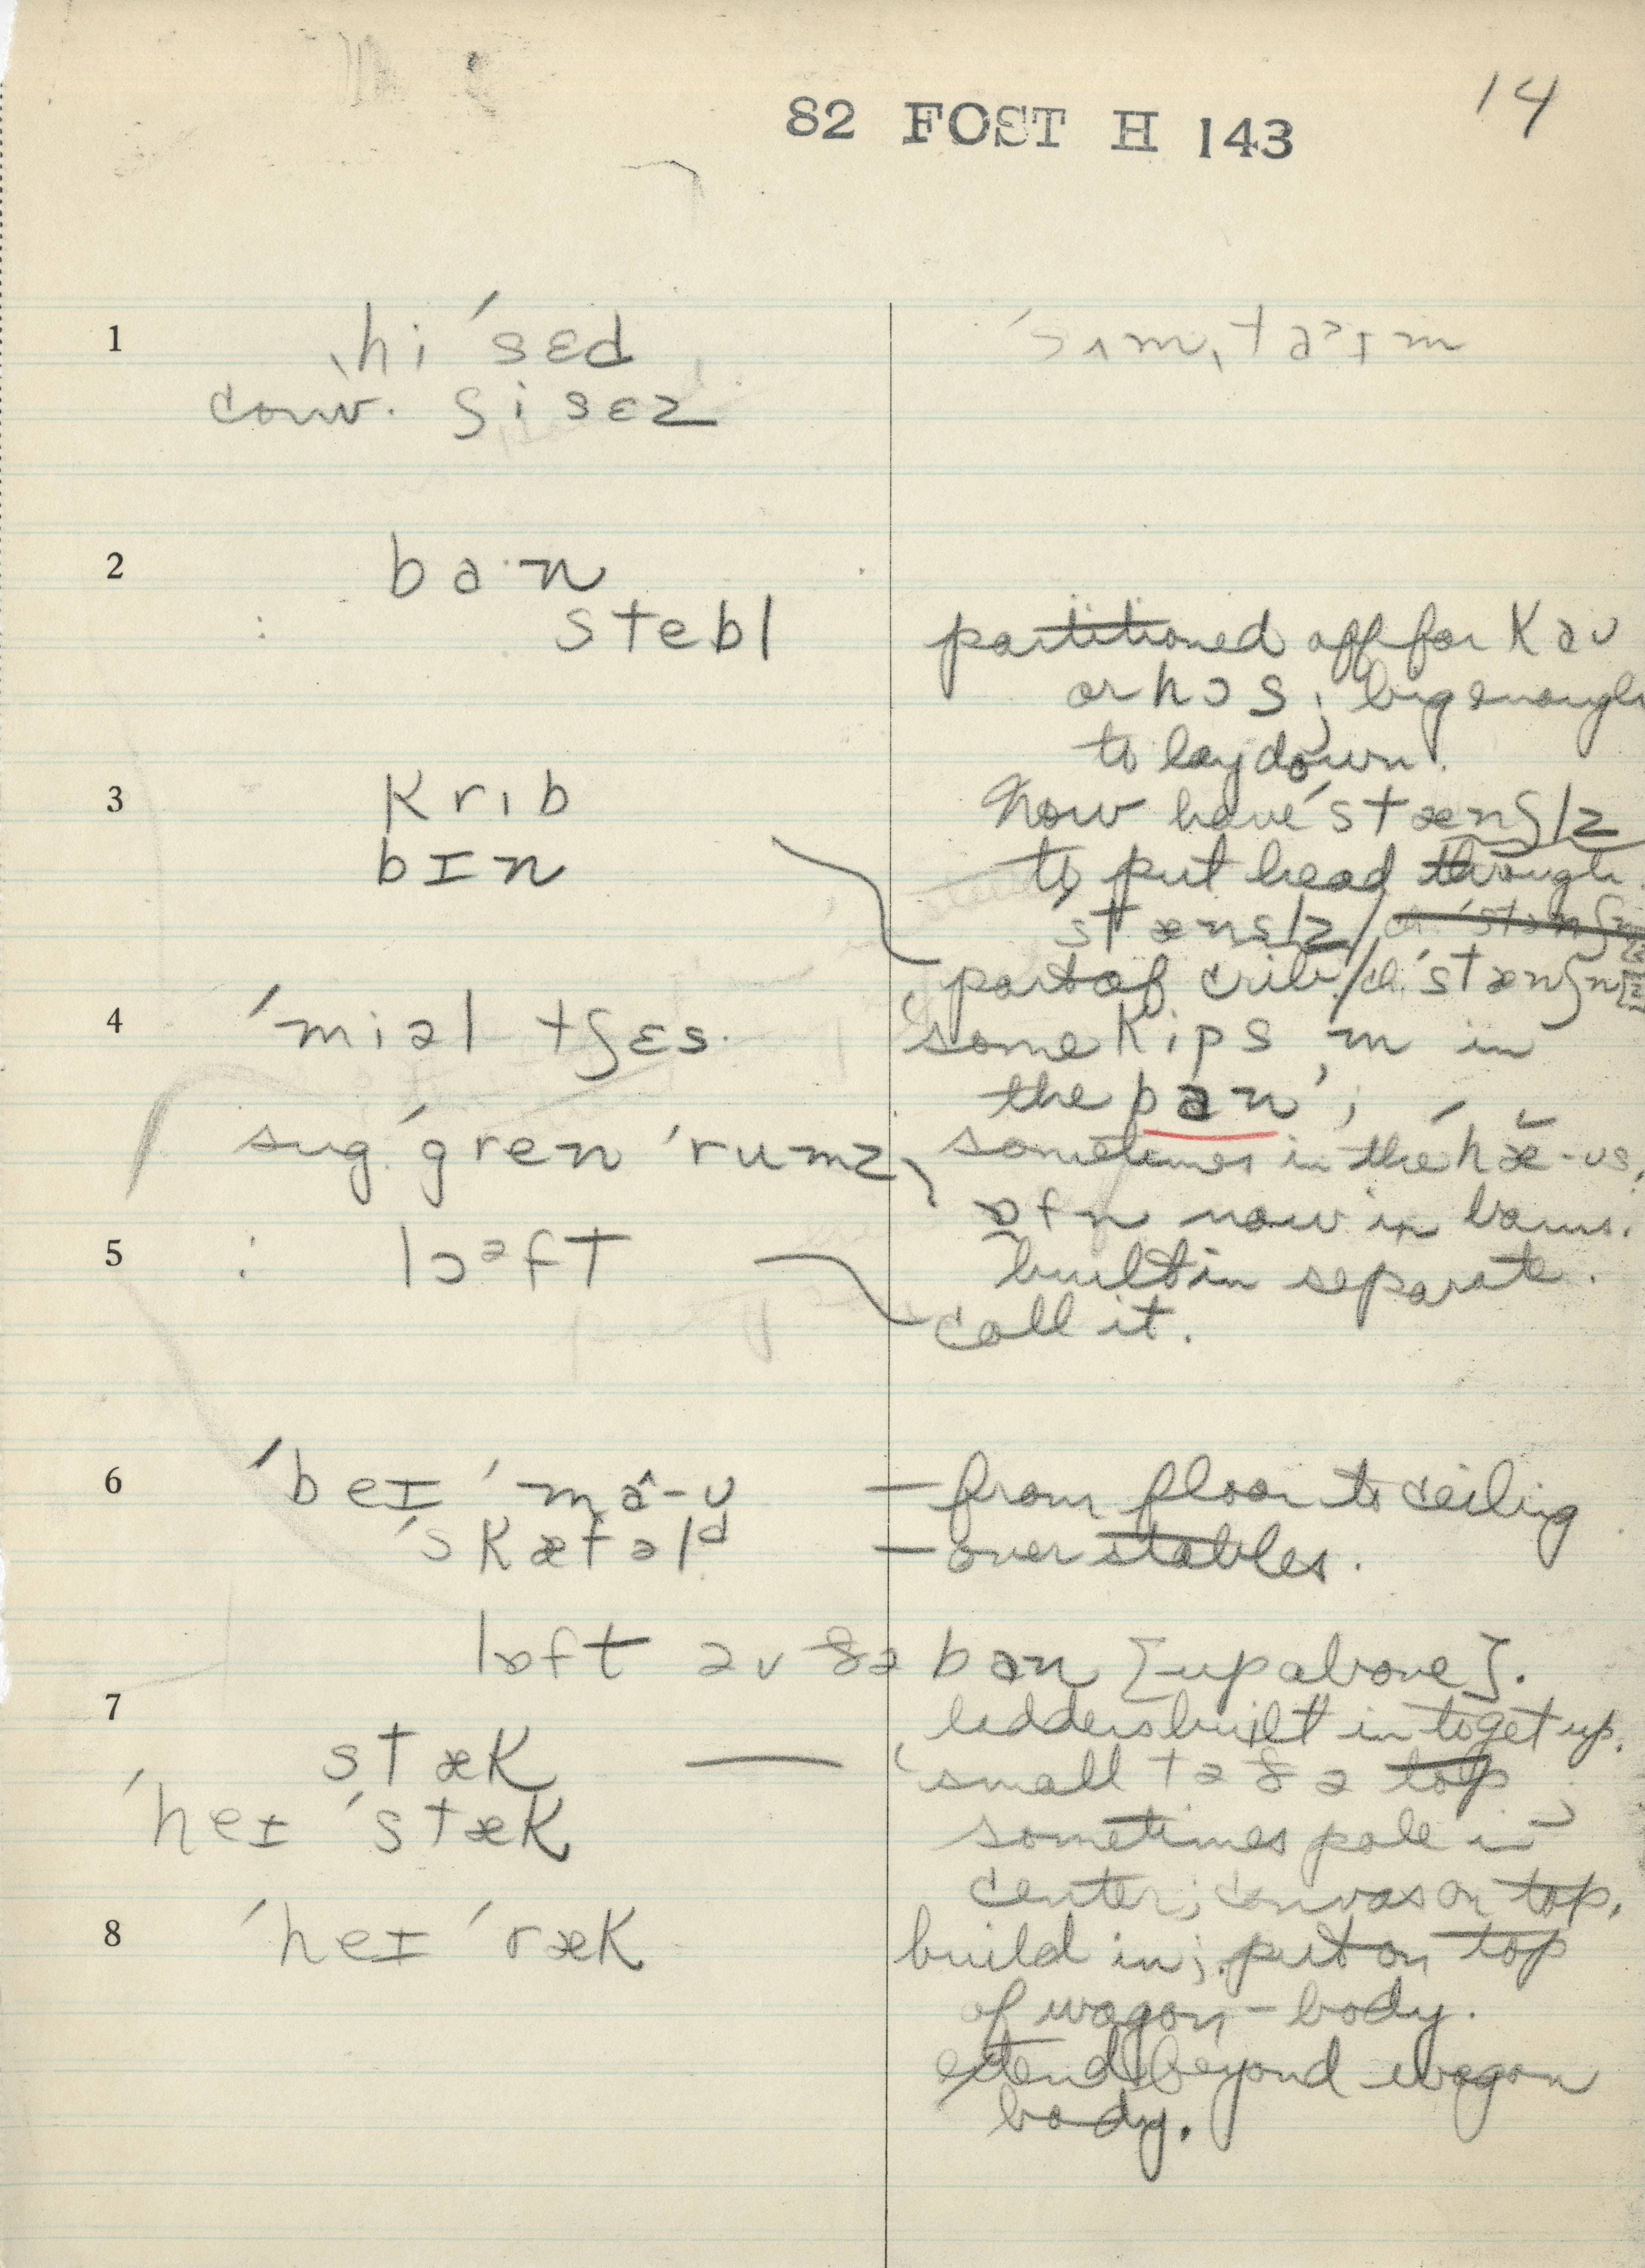 82 FOST H 143
14
1
ˌhi ˈsɛd
ˈsʌmˌtaᵊɪm
conv. ʃi sɛz
2
ba·n
: stebl
partitioned off for kaʊ
or hɔs; big enough
to lay down.
3
krɪb
bɪn
Now have ˈstænʃlz
to put head through.
ˈstænslz /
part of crib. / ˈstænʃn
4
ˈmiəl tʃɛs.
some kips m in
the ban;
sug. ˈgren ˈrumz,
sometimes in the ˈhæ-ʊs,
ɒfn now in barns.
5
: lɔᵊft
built in separate.
call it.
6
ˈbeɪ ˈmâ-ʊ
— from floor to ceiling
ˈskætəlᵈ
— over stables.
lɒft əv ðə ban [up above].
7
ladders built in to get up.
stæk —
small tə ðə top;
ˈheɪ ˈstæk
sometimes pole in
center; canvas on top.
8
ˈheɪ ˈræk
build in; put on top
of wagon-body.
extend beyond wagon
body.